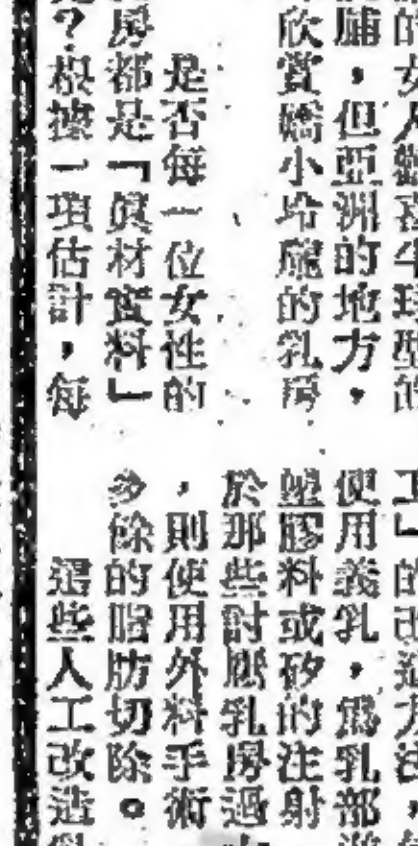 的女人
脯，但亞洲的地方，
欣賞嬌小玲瓏的乳房
是否每一位女性的
房都是「真材實料」
？根據一項估計，每
工」的改造方法，
使用義乳，為乳部
塑膠料或矽的注射
於那些討厭乳房過
，則使用外科手術
多餘的脂肪切除。
這些人工改造